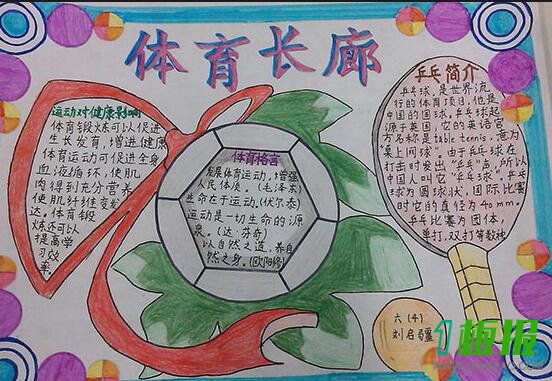 体育长廊
运动对健康影响
体育锻炼可以促进
生长发育，增进健康
体育运动可促进全身
血液循环，使肌
肉得到充分营养
使肌纤维变发
达。体育锻
炼还可以
提高学
习效
率
体育格言
发展体育运动，增强
人民体质。(毛泽东)
生命在于运动。(伏尔泰)
运动是一切生命的源
泉。(达·芬奇)
以自然之道，养自
然之身。(欧阳修)
乒乓简介
乒乓球，是世界流
行的体育项目，他是
中国的国球，乒乓球起
源于英国，它的英语官
方名称是table tennis，意为
"桌上网球"。由于乒乓球在
打击时发出"乒乓"声，所以
中国人叫它"乒乓球"。乒乓
球为圆球状，国际比赛
时它的直径为40mm。
乒乓比赛为团体，
单打，双打等数种
六(4)
刘启疆
1板报